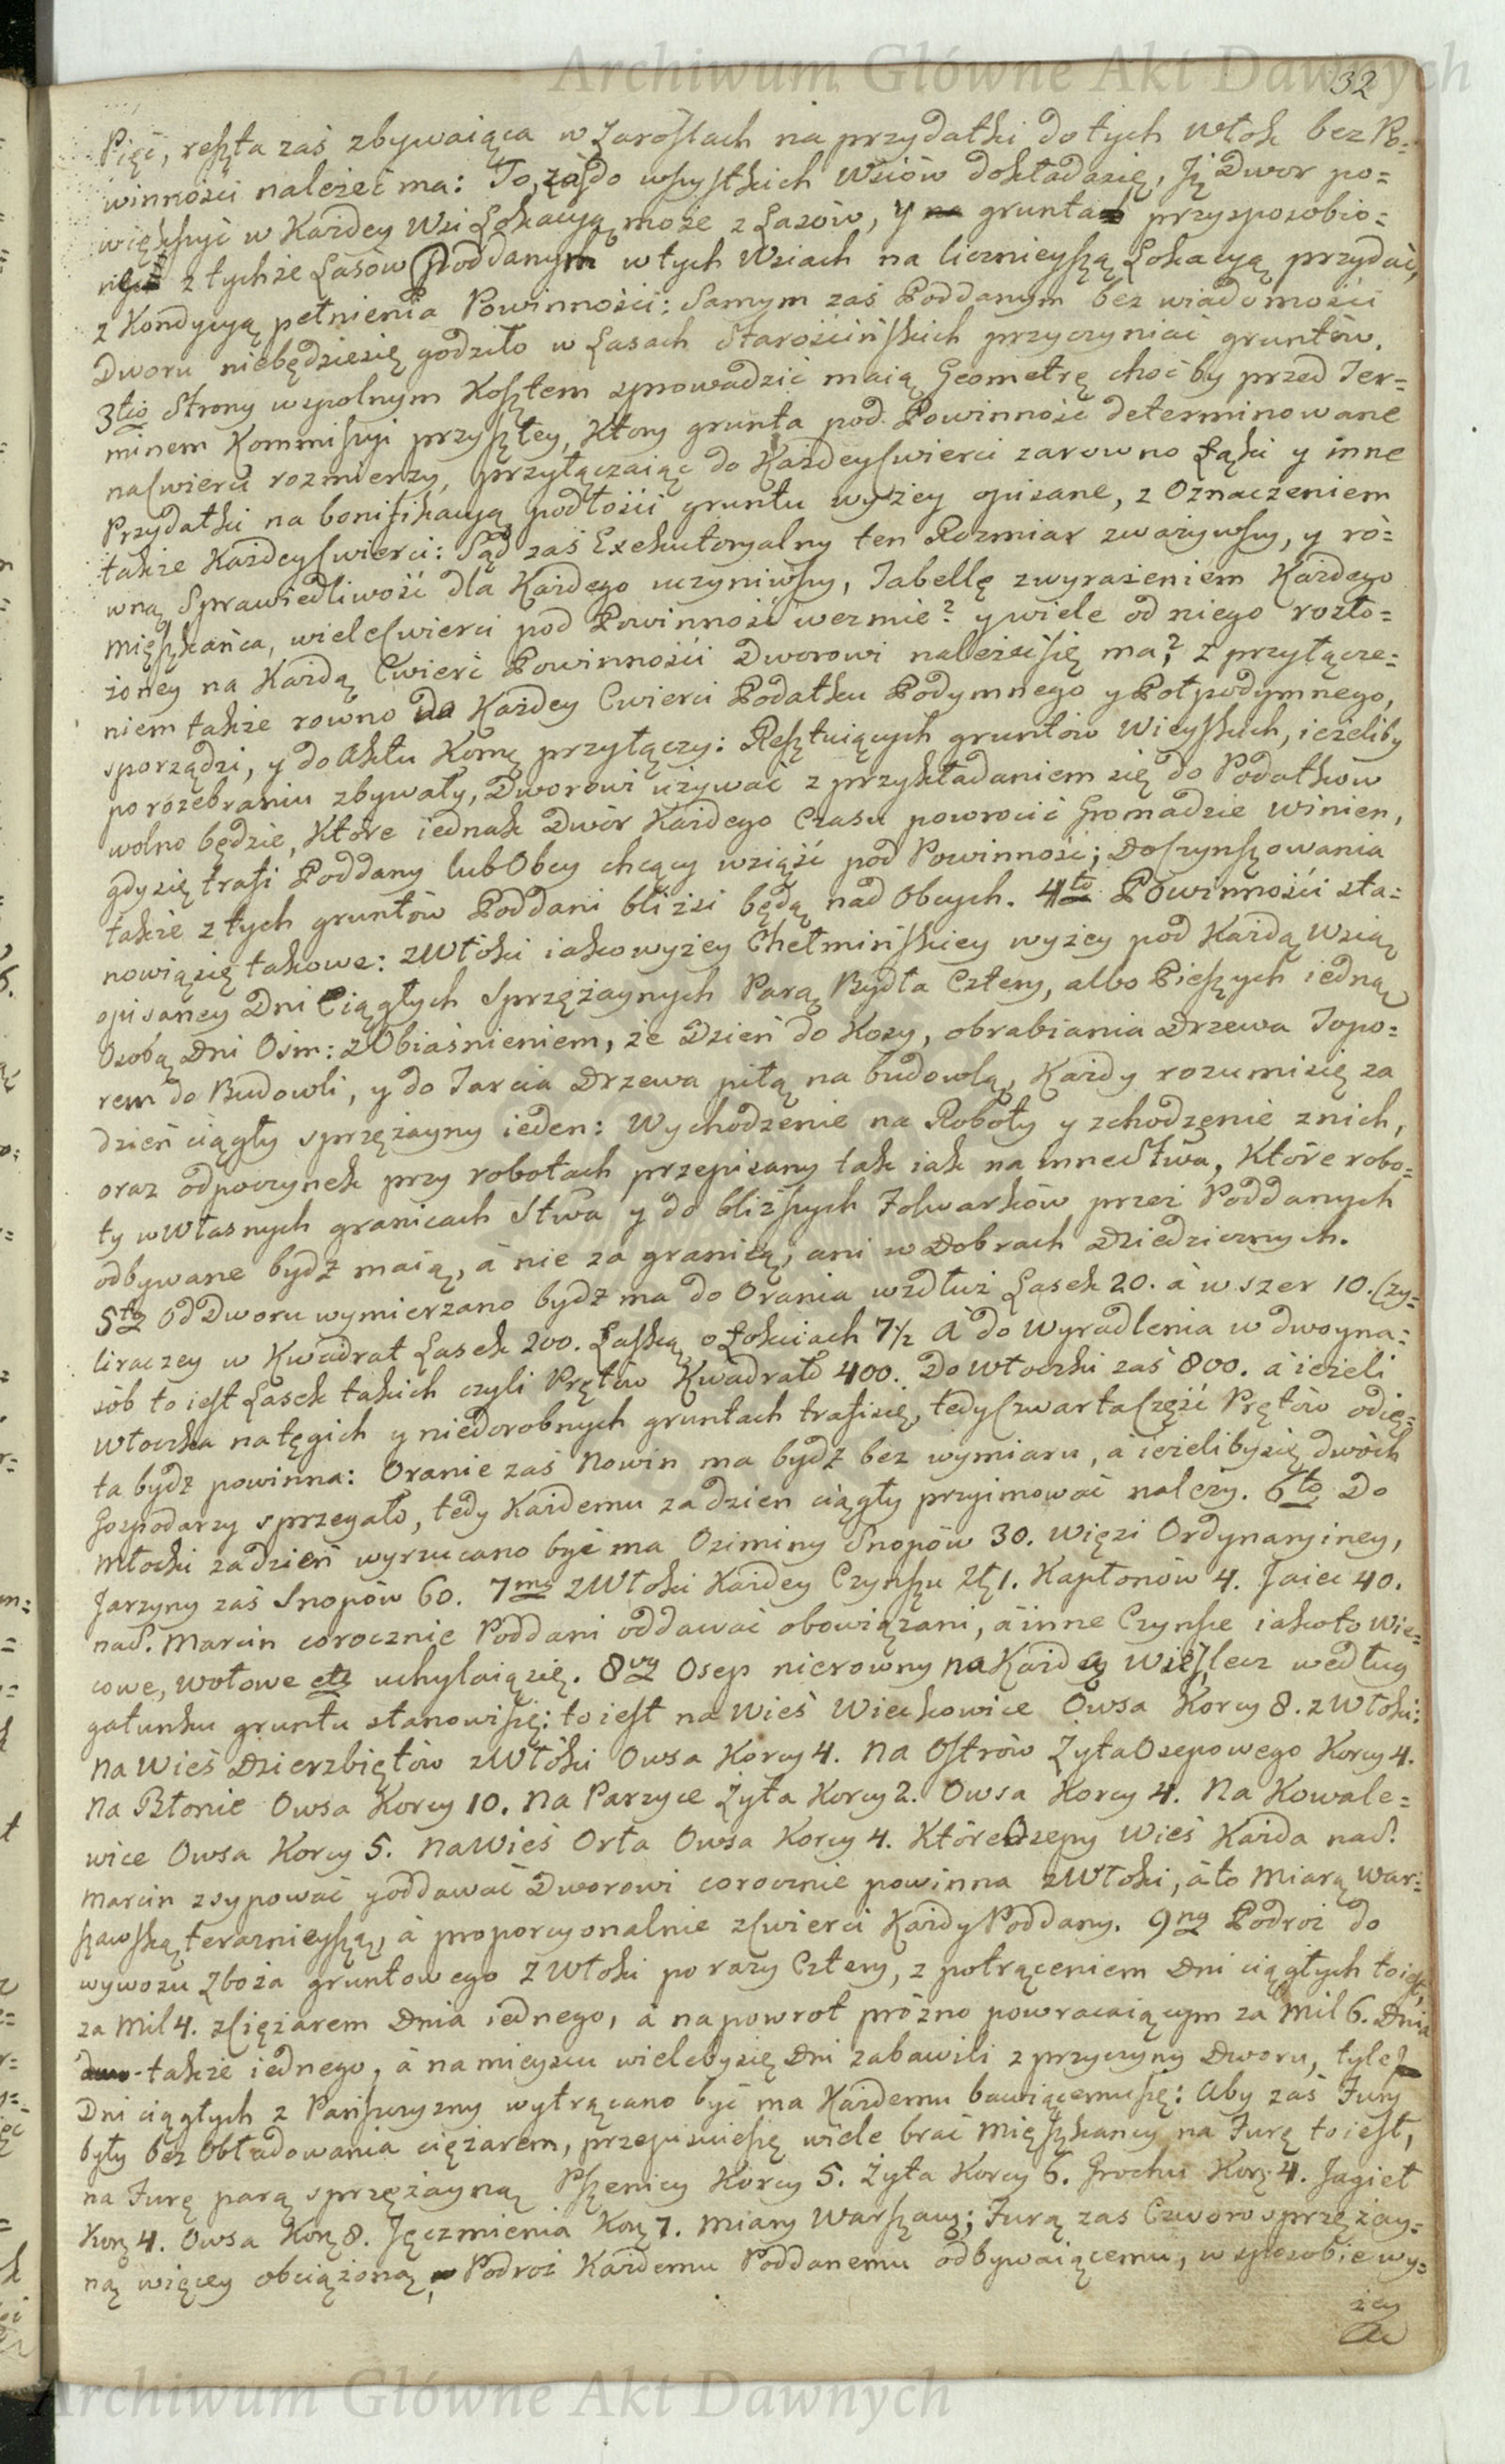 Archiwum Główne Akt Dawnych
32
Pięć, reszta zaś zbywaiąca w Zaroslach na przydatki do tych Włok bez Po=
winności należeć ma: To zaś do wszystkich Wsiów dokłada się, Jż Dwor po=
większyć w Każdey Wsi Lokacyą może z Lasów, y grunta przysposobio=
ne z tychże Lasów Poddanym w tych Wsiach na licznieyszą Lokacyą przydać,
z Kondycyą pełnienia Powinności: Samym zaś Poddanym bez wiadomości
Dworu niebędziesię godziło w Lasach Starościńskich przyczyniać gruntów.
3tio Strony wspolnym Kosztem sprowadzić maią Geometrę choćby przed Ter=
minem Kommissyi przyszłey, Ktory grunta pod Powinność determinowane
na Cwierci rozmierzy, przyłączaiąc do Każdey Cwierci zarowno Łąki y inne
Przydatki na bonifikacyą podłości gruntu wyżey opisane, z Oznaczeniem
także Każdey Cwierci: Sąd zaś Exekutoryalny ten Rozmiar zważywszy, y ró=
wną Sprawiedliwość dla Każdego uczyniwszy, Tabellę z wyrażeniem Każdego
Mięszkańca, wiele Cwierci pod Powinność wezmie? y wiele od niego rozło=
żoney na Każdą Cwierć Powinności Dworowi należeć się ma? z przyłącze=
niem także rowno do Każdey Cwierci Podatku Podymnego y Połpodymnego,
sporządzi, y do Aktu Komę przyłączy: Resztuiących gruntów Wieyskich, ieżeliby
po rozebraniu zbywały, Dworowi używać z przykładaniem się do Podatków
wolno będzie, Które iednak Dwór Każdego Czasu powrocić Gromadzie winien,
gdy się trafi Poddany lub Obcy chcący wziąść pod Powinność; Do Czynszowania
także z tych gruntów Poddani bliżsi będą nad Obcych. 4to Powinności sta=
nowią się takowe: z Włoki iako wyżey Chełmińskiey wyżey pod Każdą Wsią
opisaney Dni Ciągłych Sprzężaynych Parą Bydła Cztery, albo Pieszych iedną
Osobą Dni Osm: z Obiaśnieniem, że Dzień do Kosy, obrabiania Drzewa Topo=
rem do Budowli, y do Tarcia Drzewa piłą na budowlą, Każdy rozumi się za
dzień ciągły sprzężayny ieden: Wychodzenie na Roboty y zchodzenie z nich,
oraz odpoczynek przy robotach przepisany tak iak na inne Stwa, Które robo=
ty w Własnych granicach Stwa y do bliższych Folwarków przez Poddanych
odbywane bydź maią, a nie za granicą, ani w Dobrach Dziedzicznych.
5to Od Dworu wymierzano bydź ma do Orania wzdłuż Lasek 20. a w szer 10. Czy=
li raczey w Kwadrat Lasek 200. Laską o Łokciach 7½ A do Wyradlenia w dwoyna=
sób to iest Lasek takich czyli Prętów Kwadrato 400. Do włoczki zaś 800. a ieżeli
Włoczka na tęgich y niedorobnych gruntach trafi się, tedy Czwarta Część Prętów odię=
ta bydź powinna: Oranie zaś Nowin ma bydź bez wymiaru, a ieżeliby się dwóch
Gospodarzy sprzęgało, tedy Każdemu za dzień ciągły przyimować należy. 6to Do
Młocki za dzień wyrzucano być ma Oziminy Snopów 30. Więzi Ordynaryiney,
Jarzyny zaś Snopów 60. 7mo z Włoki Każdey Czynszu Zł 1. Kapłonów 4. Jaiec 40.
na S. Marcin corocznie Poddani oddawać obowiązani, a inne Czynsze iako to Wie=
cowe, Wołowe etc uchylaią się. 8vo Osep nierowny na Każdą Wieś, lecz według
gatunku gruntu stanowi się: to iest na Wieś Wieckowice Owsa Korcy 8. z Włoki:
Na Wieś Dzierzbiętów z Włóki Owsa Korcy 4. Na Ostrów Żyta Osepowego Korcy 4.
Na Błonie Owsa Korcy 10. Na Parzyce Żyta Korcy 2. Owsa Korcy 4. Na Kowale=
wice Owsa Korcy 5. Na Wieś Orła Owsa Korcy 4. Które Osepy Wieś Każda na S.
Marcin zsypować y oddawać Dworowi corocznie powinna z Włoki, a to Miarą War=
szawską teraznieyszą, a proporcyonalnie z Cwierci Każdy Poddany. 9no Podroż do
wywozu Zboża gruntowego z Włoki po razy Cztery, z potrąceniem Dni ciągłych to iest,
za Mil 4. z Ciężarem Dnia iednego, a na powrot próżno powracaiącym za Mil 6. Dnia
także iednego, a na mieyscu wieleby się Dni zabawili z przyczyny Dworu, tyle
Dni ciągłych z Pańszczyzny wytrącano być ma Każdemu bawiącemu się: Aby zaś Fury
były bez Obładowania ciężarem, przepisuie się wiele brać Mięszkańcy na Furę to iest,
na Furę parą sprzężayną Pszenicy Korcy 5. Żyta Korcy 6. Grochu Korcy 4. Jagieł
Korcy 4. Owsa Korcy 8. Jęczmienia Korcy 7. Miary Warszaws; Furą zas Czworo sprzężay=
ną więcey obciążoną, Podroż Każdemu Poddanemu odbywaiącemu, w sposobie wy=
żey
Archiwum Główne Akt Dawnych